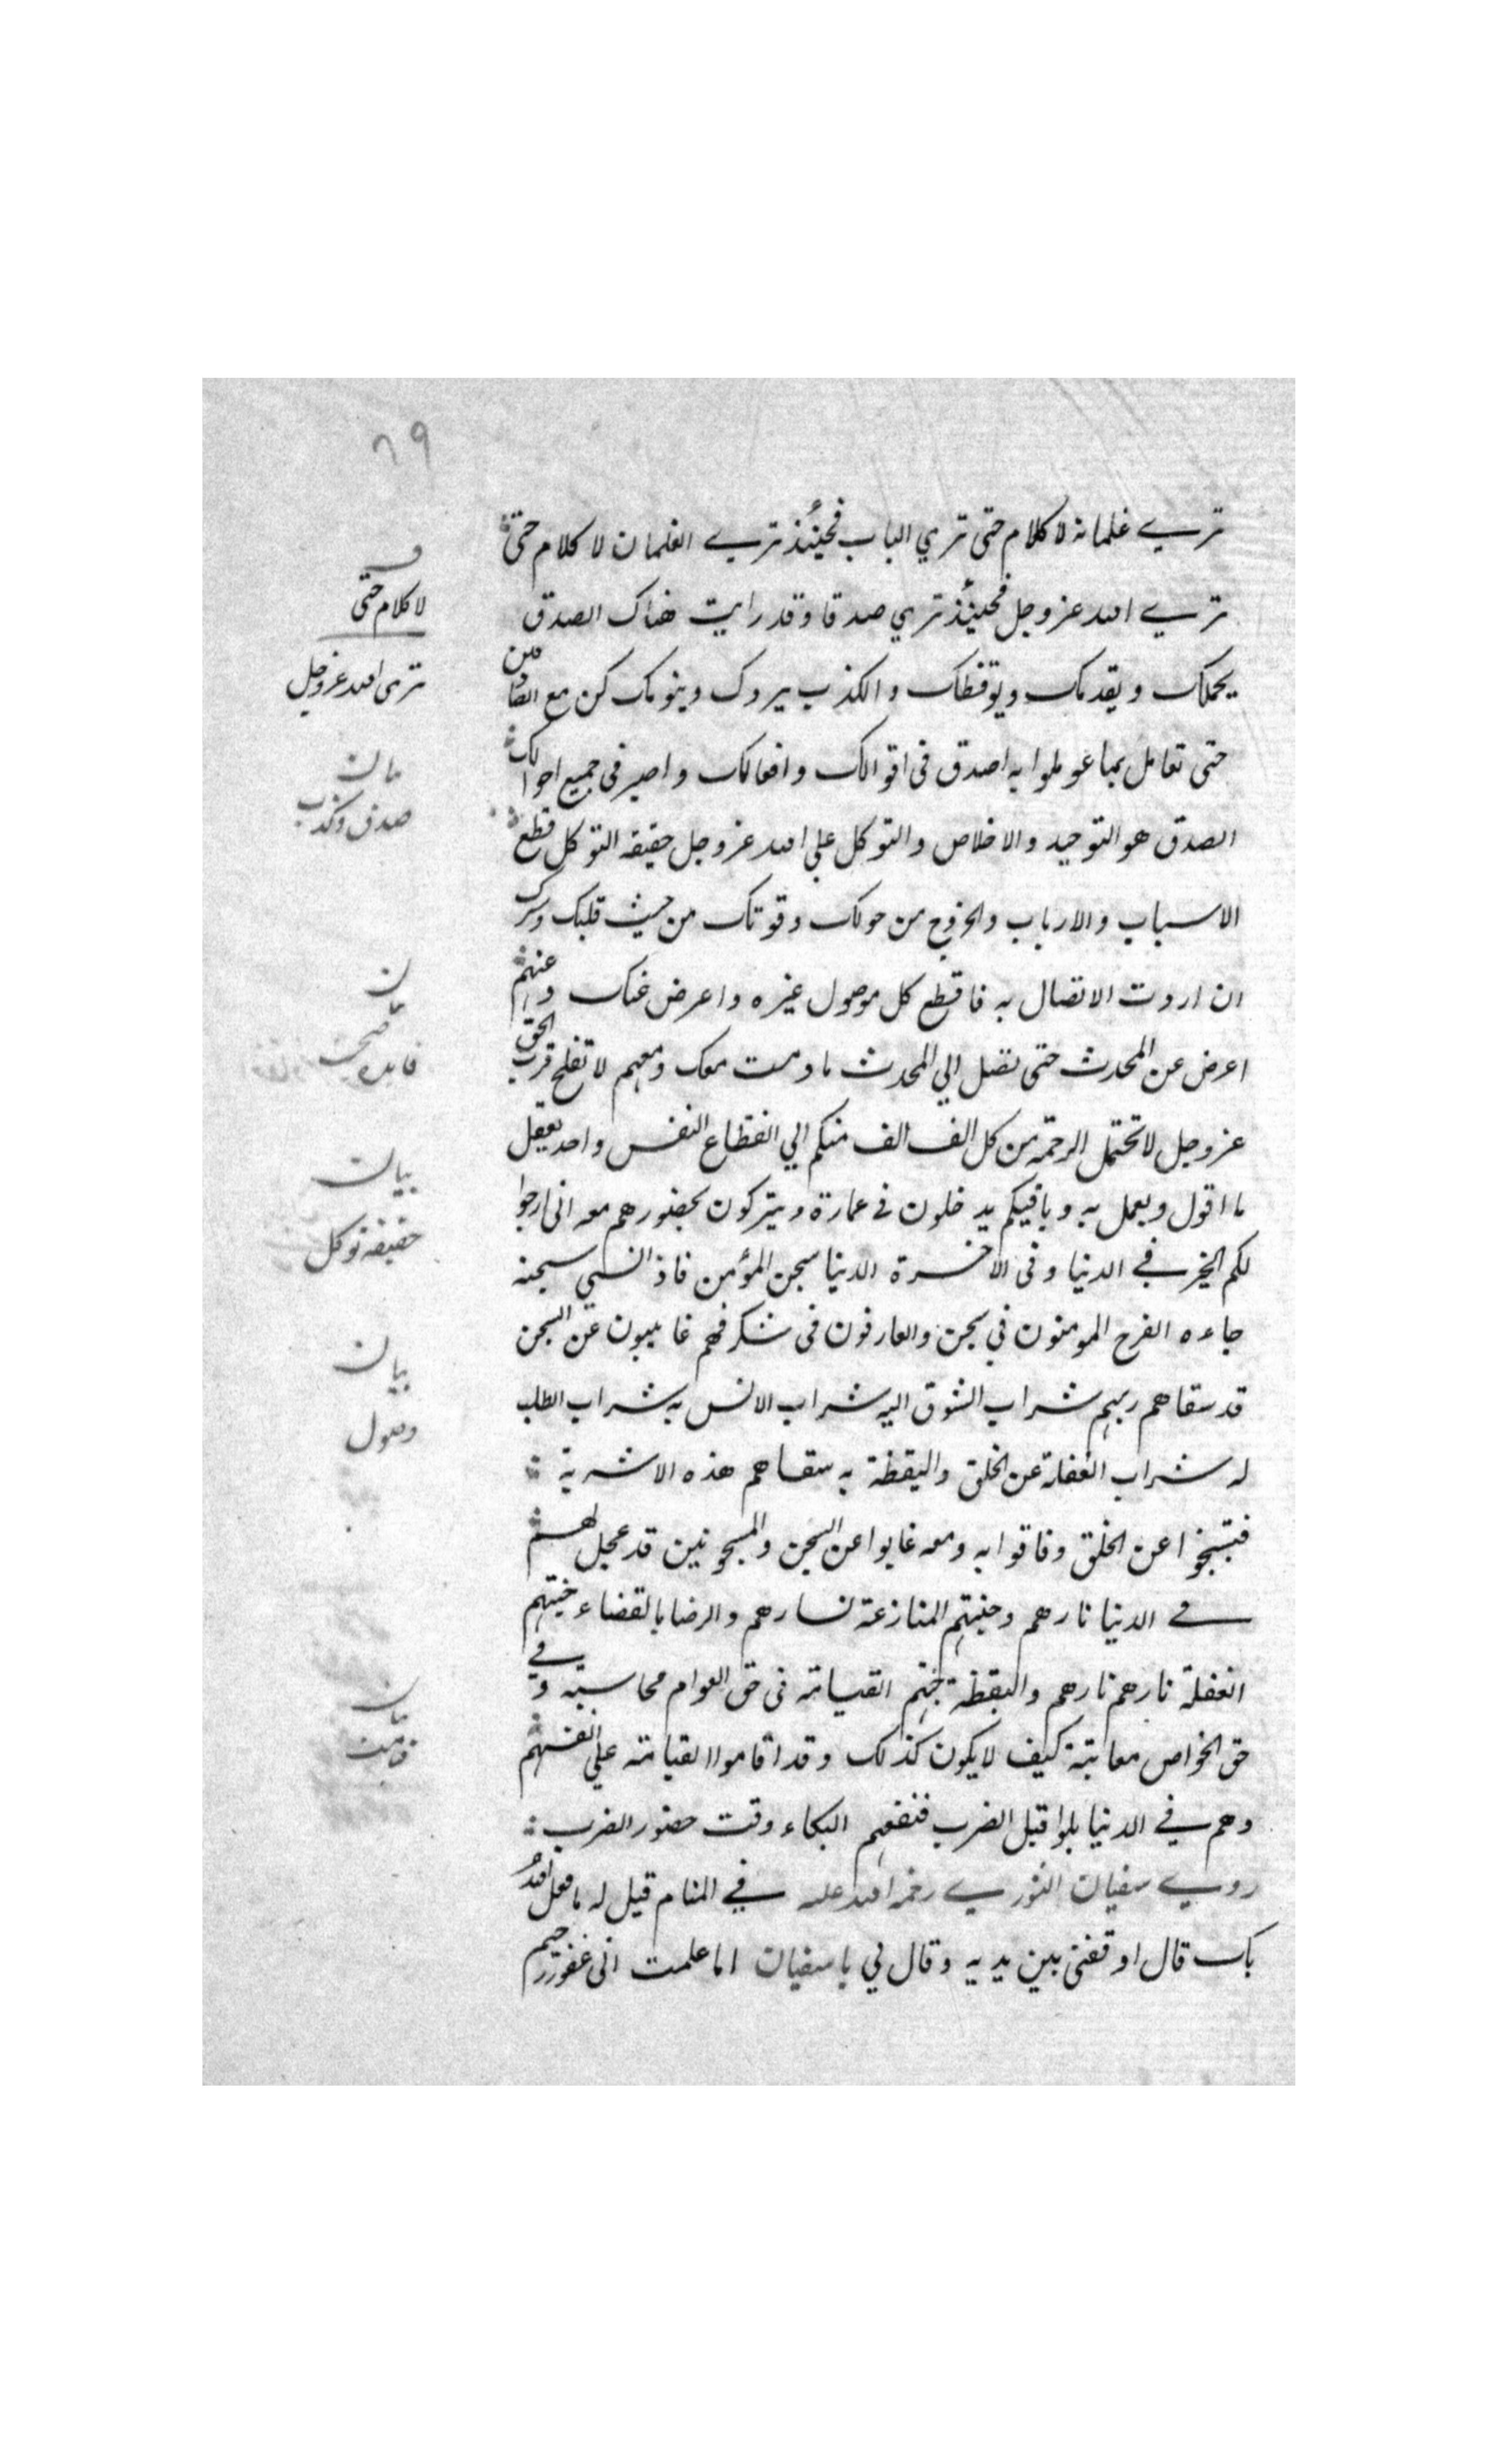 ٦٩
تري غلمانه لا كلام حتى تري الباب فحينئذ تري الغلمان لا كلام حتى
تري الله عز وجل فحينئذ تري صدقا وقد رايت هناك الصدق
يحملك ويقدمك ويوقظك والكذب يردك وينومك كن مع الصادقين
حتى تعامل بما عوملوا به اصدق فى اقوالك وافعالك واصبر فى جميع احوالك
الصدق هو التوحيد والاخلاص والتوكل علي الله عز وجل حقيقة التوكل قطع
الاسباب والارباب والخروج من حولك وقوتك من حيث قلبك وسرك
ان اردت الاتصال به فاقطع كل موصول غيره واعرض عنك وعنهم
اعرض عن المحدث حتى تصل الي المحدث ما دمت معك ومعهم لا تفلح قرب الحق
عز وجل لا تحتمل الزحمة من كل الف الف منكم الي انقطاع النفس واحد يعقل
ما اقول ويعمل به وباقيكم يدخلون في عمارة ويتبركون بحضورهم معه انى ارجوا
لكم الخير في الدنيا وفى الاخرة الدنيا سجن المؤمن فاذا نسي سجنه
جاءه الفرح المومنون في سجن والعارفون فى شكر فهم غايبون عن السجن
قد سقاهم ربهم شراب الشوق اليه شراب الانس به شراب الطلب
له شراب الغفلة عن الخلق واليقظة به سقاهم هذه الاشربة
عن الخلق وفاقوا به ومعه غابوا عن السجن والمسجونين قد عجل لهم
في الدنيا نارهم وجنتهم المنازعة نارهم والرضا بالقضاء جنتهم
الغفلة نارهم نارهم واليقظة جنتهم القيامة فى حق العوام محاسبة وفي
حق الخواص معاتبة كيف لا يكون كذلك وقد اقاموا القيامة علي انفسهم
وهم في الدنيا بكوا قبل الضرب فنفعهم البكاء وقت حضور الضرب
روي سفيان الثوري رحمه الله عليه في المنام قيل له ما فعل الله
بك قال اوقفنى بين يديه وقال لي يا سفيان اما علمت انى غفور رحيم
لا كلام حتى
ترى الله عز وجل
بيان
صدق وكذب
بيان
فايده
بيان
حقيقة توكل
بيان
وصول
بيان
قيامت